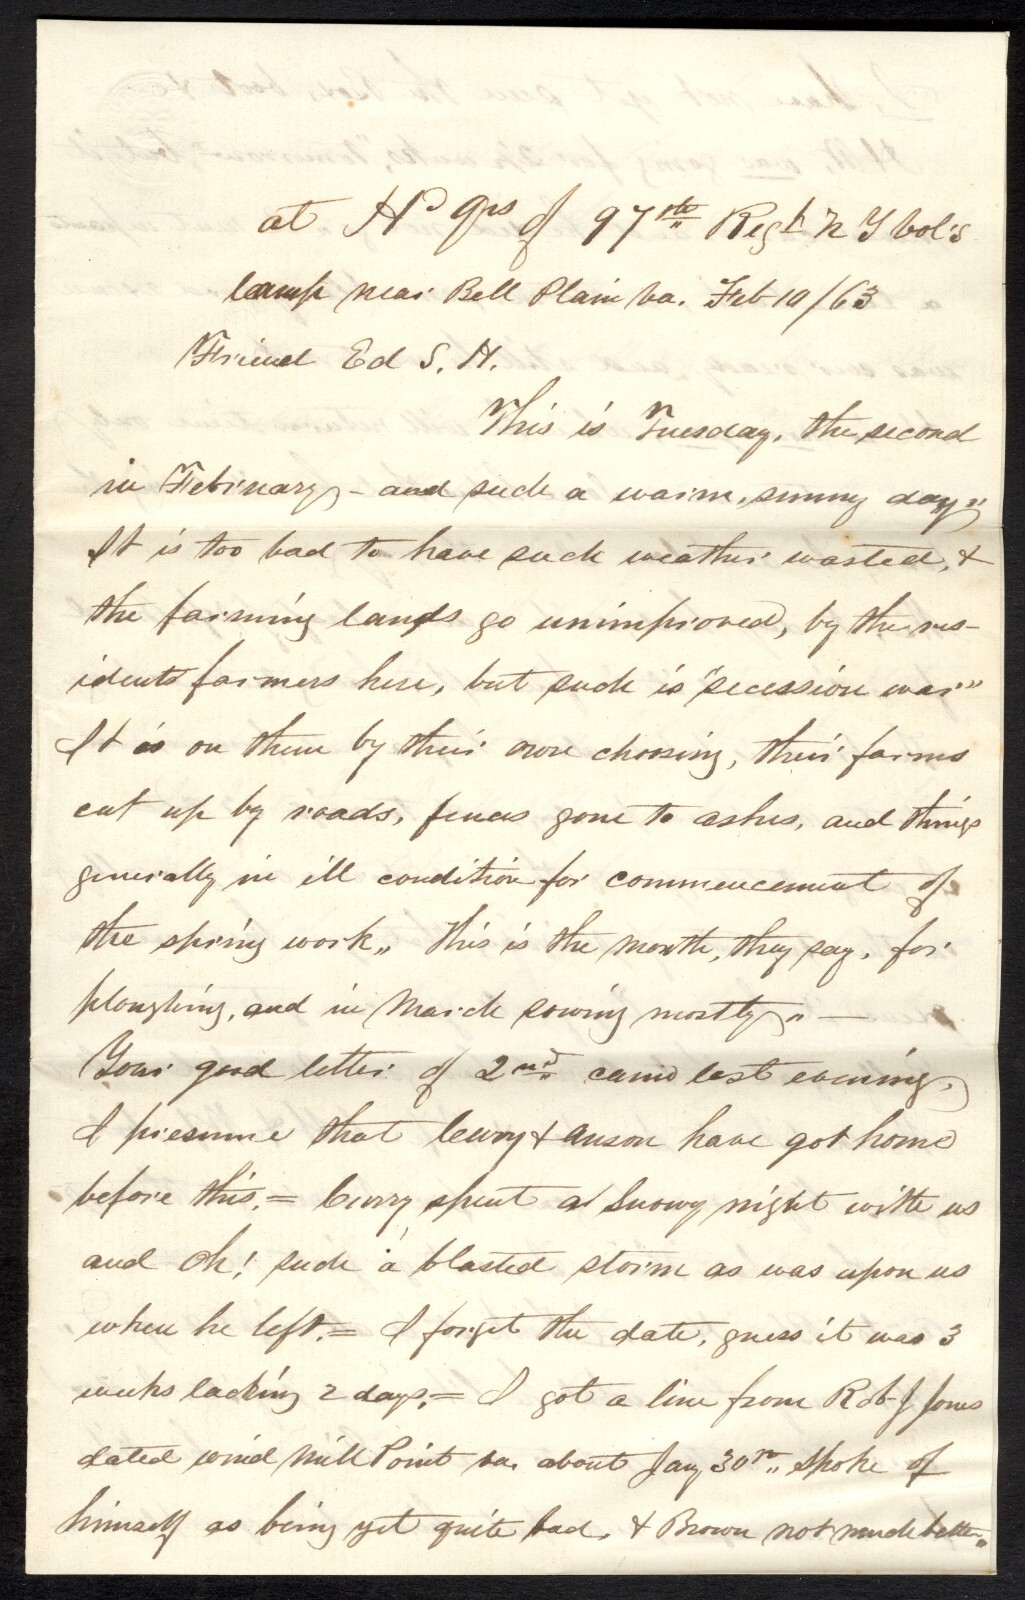 at Hd Qrs of 97th Regt N Y Vol's
Camp near Bell Plain Va. Feb 10/63
Friend Ed S. H.
This is Tuesday, the second
in February,- and such a warm, sunny day"
It is too bad to have such weather wasted, &
the farming lands go unimproved, by the res-
idents farmers here, but such is "secession war"
It is on them by their own choosing, their farms
cut up by roads, fences gone to ashes, and things
generally in ill condition for commencement of
the spring work,, This is the month, they say, for
ploughing, and in March sowing mostly," —
Your good letter of 2nd came last evening,
I presume that Curry & Anson have got home
before this,= Curry spent a snowy night with us
and Oh! such a blasted storm as was upon us
when he left,= I forget the date, guess it was 3
weeks lacking 2 days,= I got a line from Rob J Jones
dated Wind Mill Point Va. about Jay 30th,, spoke of
himself as being yet quite bad, & Brown not much better,,